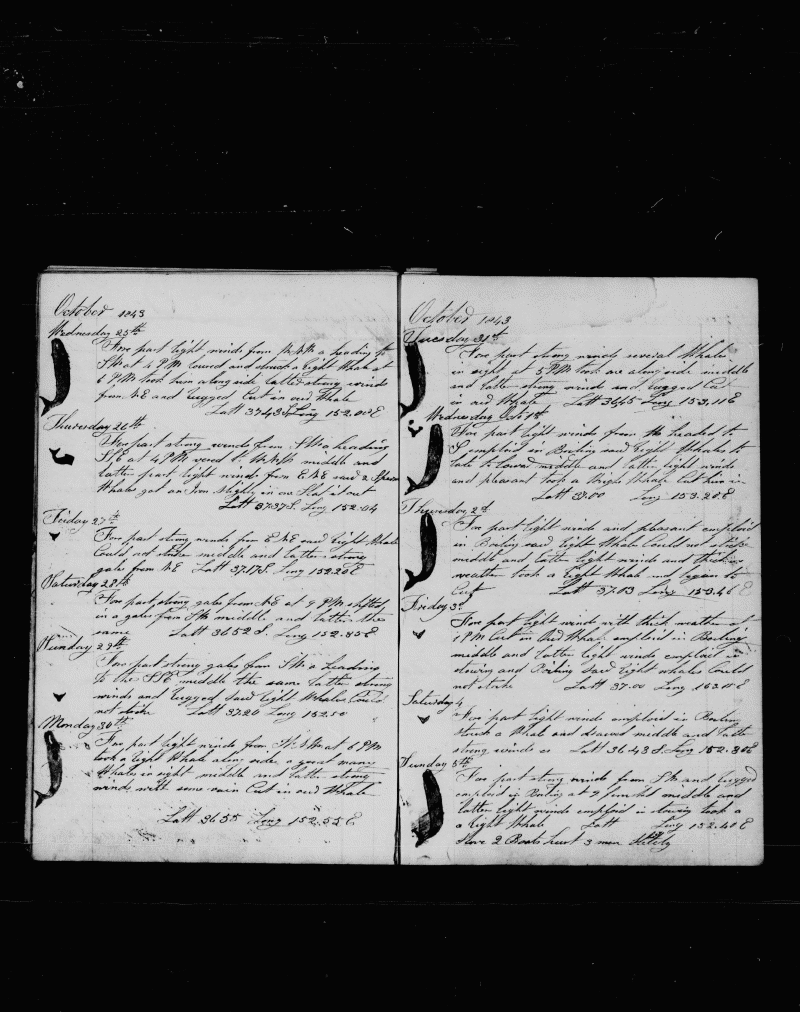 October 1843
Wednesday 25th
Fore part light winds from NNW a heading to
SW at 4 PM lowed and struck a right Whale at
6 PM took him along side latter strong winds
from NE and rugged Cut in our Whale
Latt 37.43 S Long 152.00 E
Thursday 26th
Fore part strong winds from SW a heading
SSE at 4 PM veerd to NNW middle and
latter part light winds from ENE saw 2 Sperm
Whales got one from Mighty in our
Latt 37.37 S Long 152.04
Friday 27th
Fore part strong winds from ENE saw right Whale
Could not strike middle and latter strong
gales from NE Latt 37.17 S Long 152.20 E
Saturday 28th
Fore part strong gales from NE at 9 PM shifted
in a gales from SW middle and latter the
same Latt 36.52 S Long 152.35 E
Sunday 29th
Fore part strong gales from SW a heading
to the SSE middle the same latter strong
winds and rugged saw right Whales Could
not strike Latt 37.20 Long 152.50
Monday 30th
Fore part light winds from at 6 PM
took a right Whale along side a great many
Whales in sight middle and latter strong
winds with some rain Cut in our Whale
Latt 36.55 Long 152.52 E
October 1843
Tuesday 31st
Fore part strong winds several Whales
in sight at 5 PM took one along side middle
and latter strong winds and rugged Cut
in our Whale Latt 36.45 Long 153.11 E
Wednesday Oct 1st
Fore part light winds from headed to
S emploid in Boiling saw right Whales to
late to lower middle and latter light winds
and pleasant took a Right Whale Cut him in
Latt 37.00 Long 153.20 E
Thursday 2d
Fore part light winds and pleasant emploid
in Boiling saw right Whale Could not strike
middle and latter light winds and thick
weather took a right Whale and began to
Cut Latt 37.03 Long 153.46 E
Friday 3d
Fore part light winds with thick weather at
1 PM Cut in our Whale emploid in Boiling
middle and latter light winds emploid in
stowing and Boiling saw right whales Could
not strike Latt 37.00 Long 153.00 E
Saturday 4
Fore part light winds emploid in Boiling
struck a Whale and drawed middle and latter
strong winds Latt 36.43 S Long 152.30 E
Sunday 5th
Fore part strong winds from SW and rugged
emploid in Boiling at 9 finishd middle and
latter light winds emploid in stowing took a
a right Whale Latt Long 152.40 E
Stove 2 Boats hurt 3 men